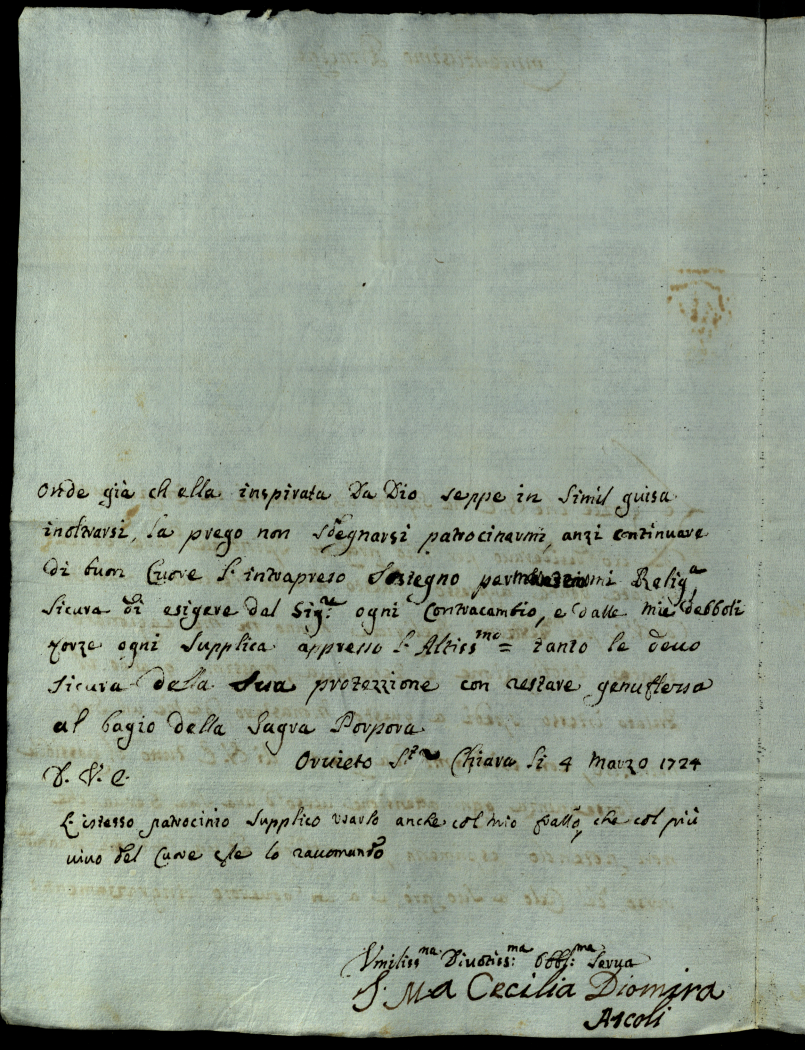 Onde già ch ella inspirata Da Dio seppe in simil guisa
inoltrarsi, la prego non sdegnarsi patrocinarmi, anzi continuare
di buon Cuore l'intrapreso Sostegno per mi Relig.a
sicura di esigere dal Sig.re ogni Contracambio, e dalle mie debboli
forze ogni supplica appresso l'Altiss.mo = tanto le devo
sicura della Sua protezzione con restare genuflessa
al bagio della Sagra Porpora
Orvieto S.ta Chiara li 4 Marzo 1724
D. V. E.
L'istesso patrocinio supplico usarlo anche col mio fratello che col più
vivo del Cuore le lo raccomando
Umiliss.ma Divotiss.ma Obbl.ma Serva
S. M.a Cecilia Diomira
Ascoli